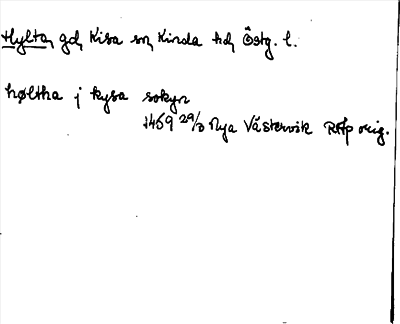 Hylta, gd, Kisa sn, Kinda hd, Östg. l.
høltha j kysa sokyn
1469 29/3 Nya Västervik RAp orig.